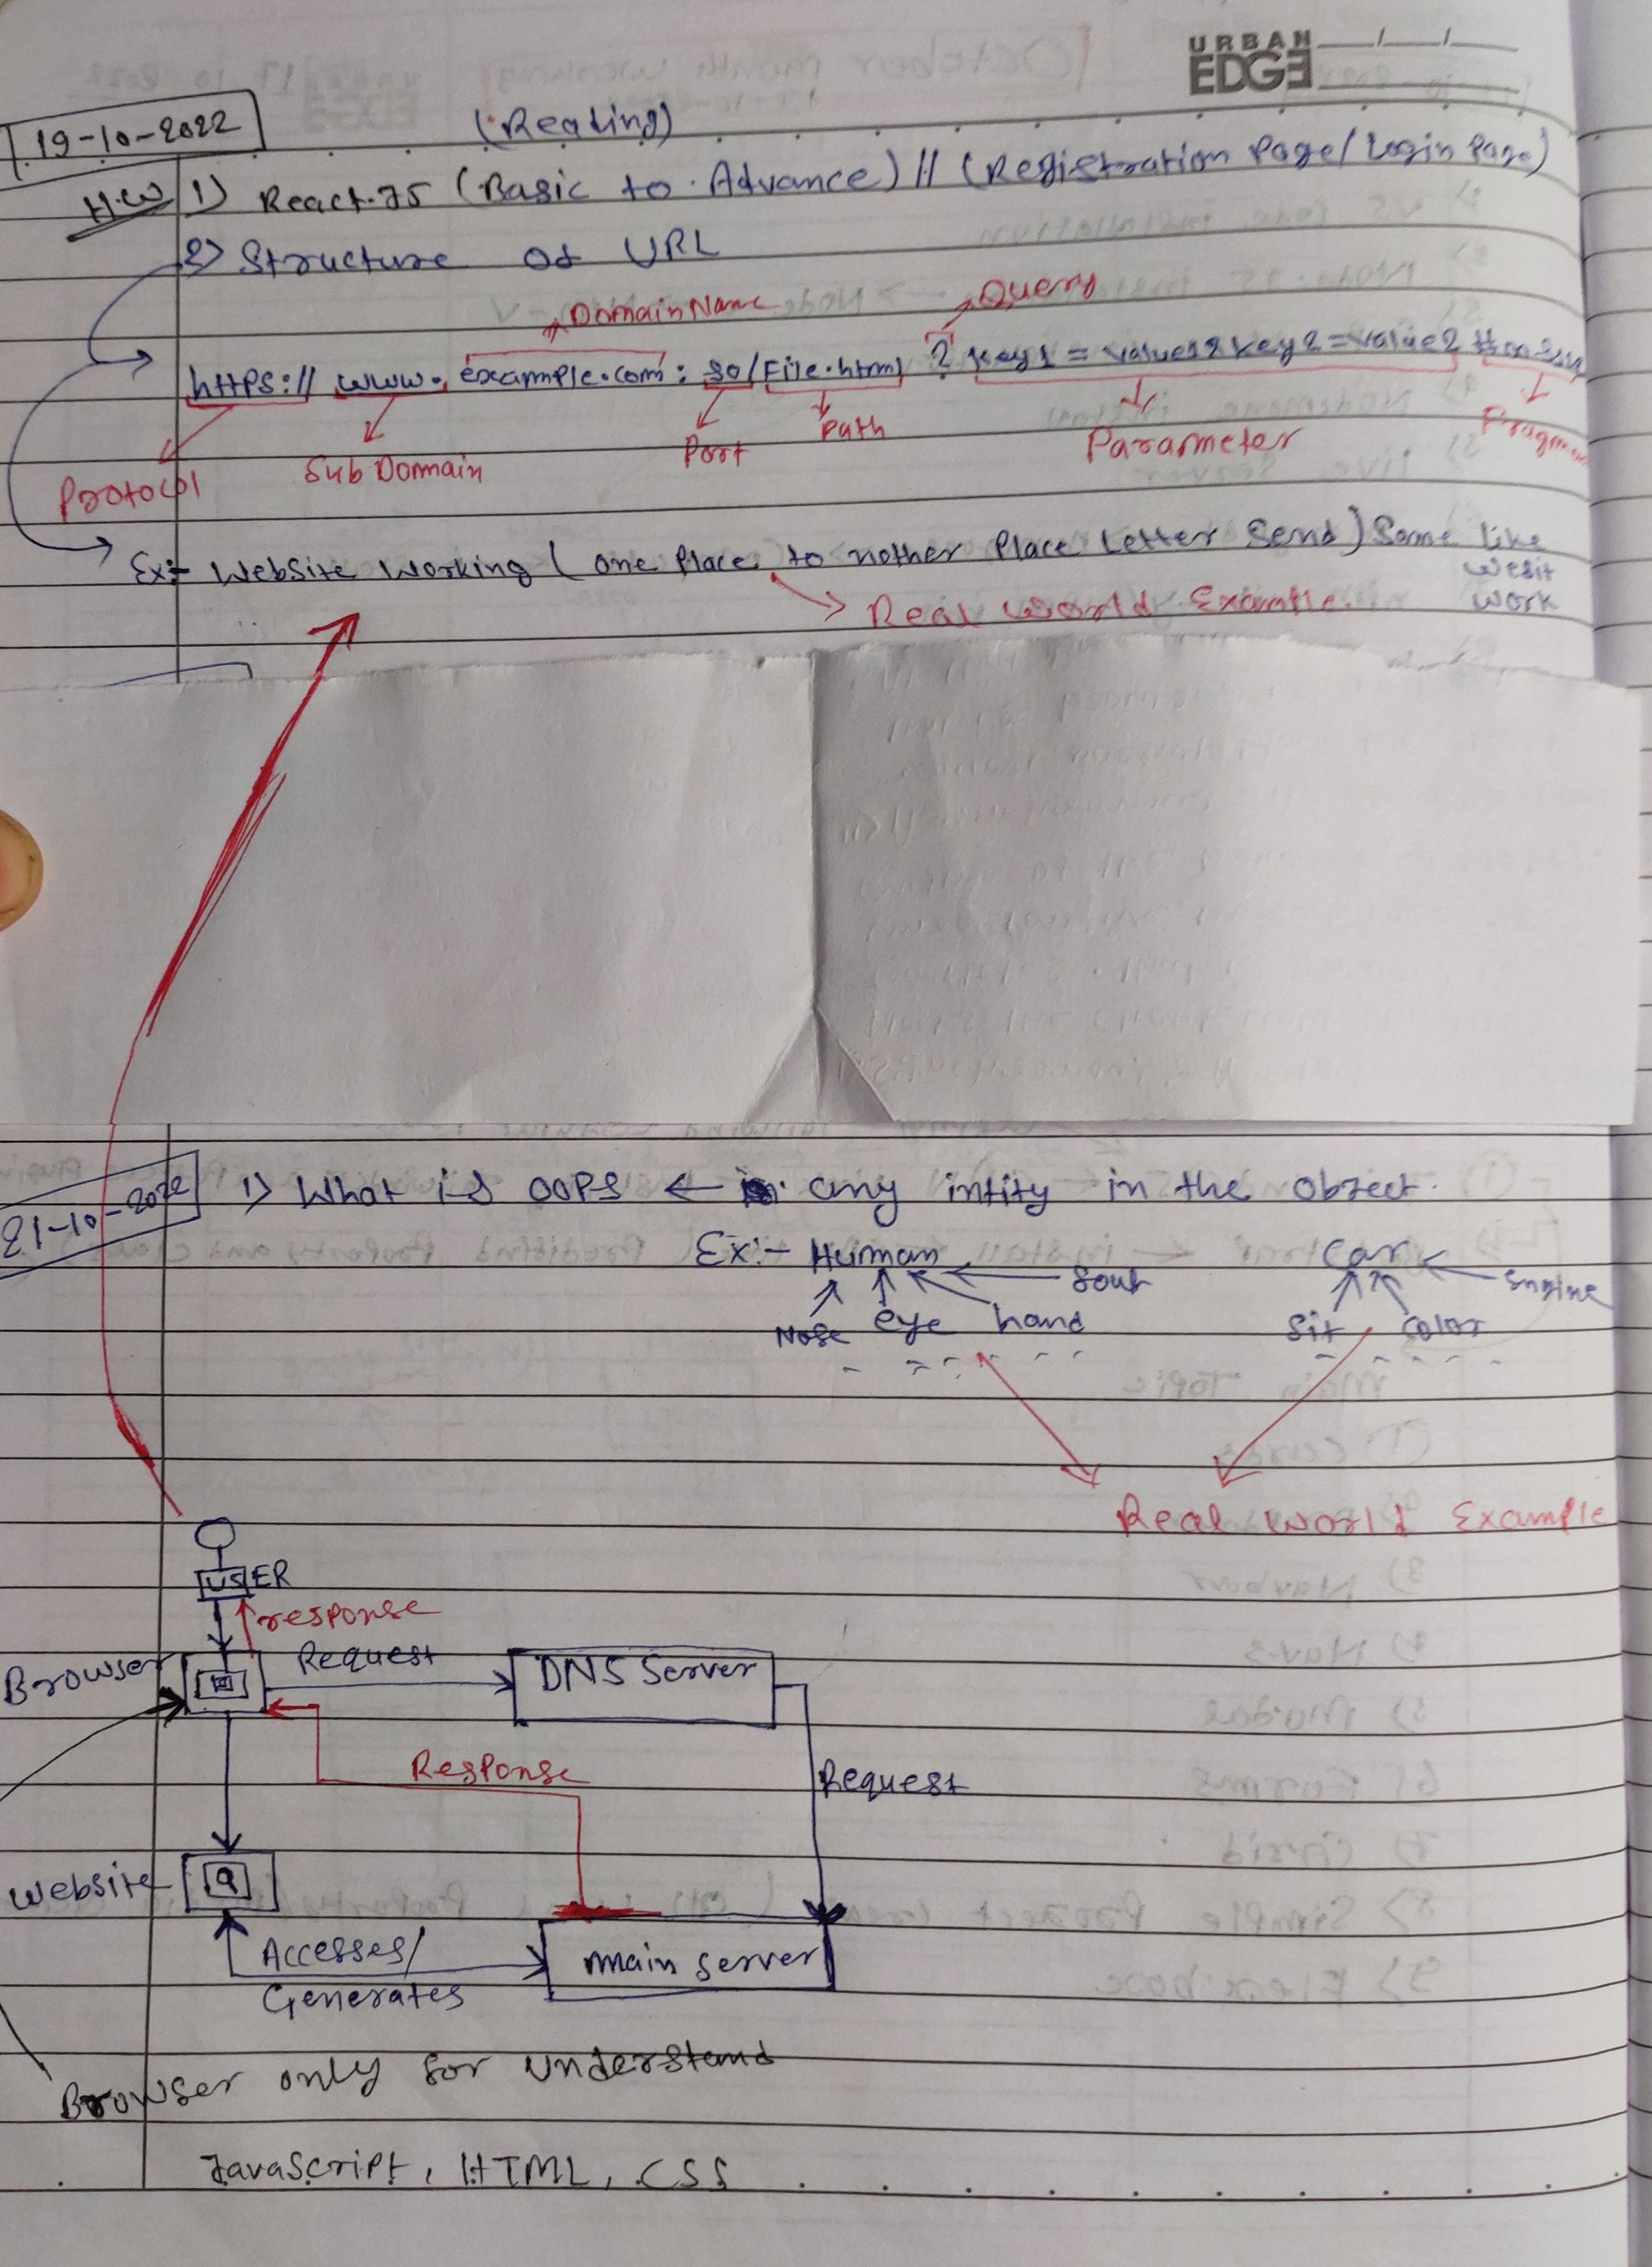 URBAN EDGE
19-10-2022 (Reading)
H.W 1) React.JS (Basic to Advance) // (Registration Page/Login Page)
2) Structure of URL
Domain Name Query
https:// www. example.com: 80/File.html ? key1 = value1 & key2 = value2 #
Protocol Sub Domain Port Path Parameter
Ex:- Website Working (one Place to nother Place Letter Send) Same like
wesit
work
Real World Example.
21-10-2022 1) What is OOPS ← any intity in the Object.
Ex:- Human Car
Nose eye hand Sit Color Engine
Real World Example
USER
response
Browser Request DNS Server
Response Request
Website
Accesses/
Generates
main server
Browser only for understand
JavaScript, HTML, CSS